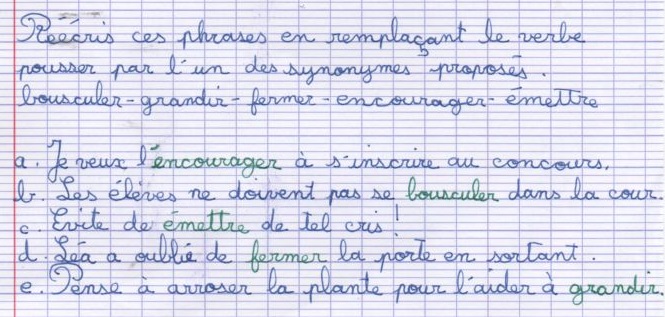 Réécris ces phrases en remplaçant le verbe
pousser par l'un des synonymes proposés.
bousculer - grandir - fermer - encourager - émettre
a. Je veux l'encourager à s'inscrire au concours.
b. Les élèves ne doivent pas se bousculer dans la cour.
c. Evite de émettre de tel cris !
d. Léa a oublié de fermer la porte en sortant.
e. Pense à arroser la plante pour l'aider à grandir.